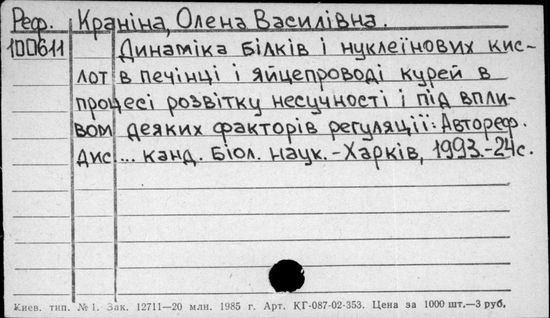 Реф. Краніна, Олена Василівна.
100611 Динаміка білків і нуклеїнових кис-
лот в печінці і яйцепроводі курей в
процесі розвітку несучності і під впли-
вом деяких факторів регуляції: Автореф.
дис ... канд. біол. наук. - Харків, 1993.-24с.
Киев. тип. №1. Зак. 12711—20 млн. 1985 г. Арт. КГ-087-02-353. Цена за 1000 шт.—3 руб.